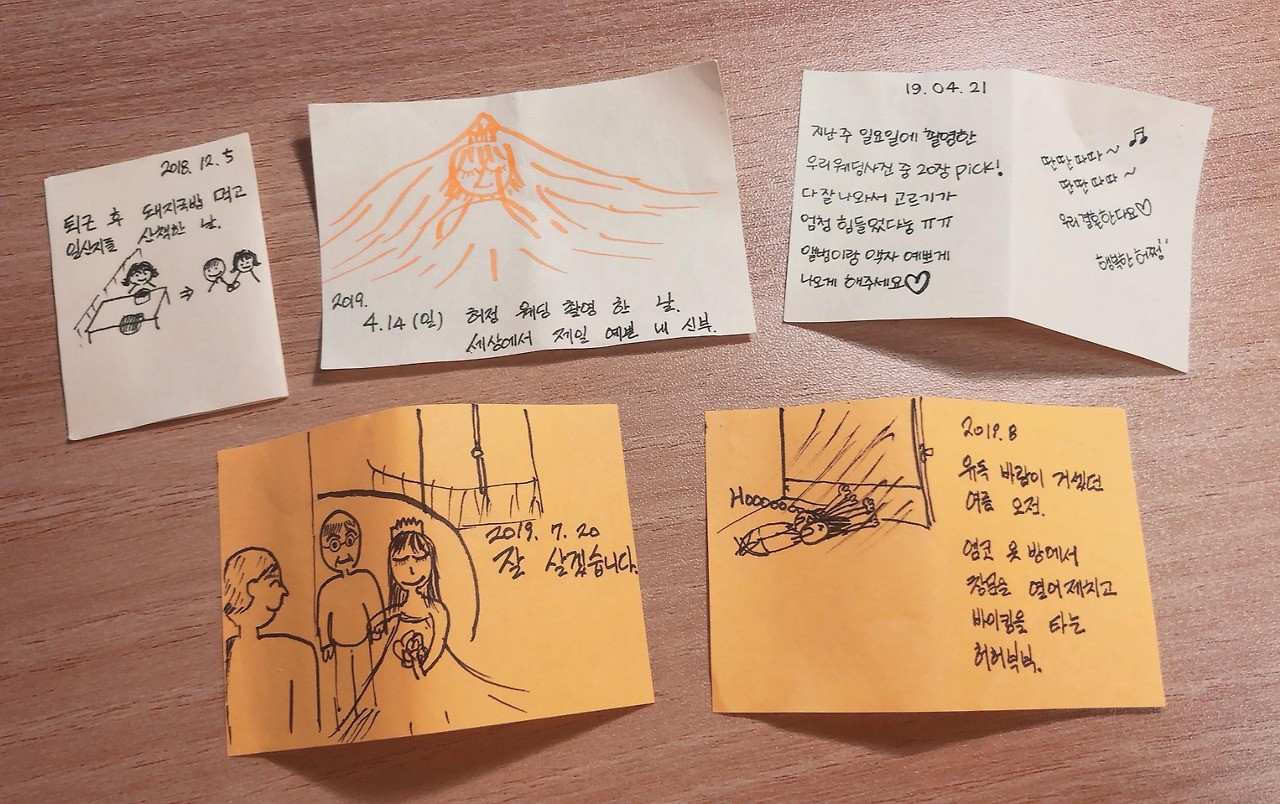 2018. 12. 5
퇴근 후 돼지국밥 먹고
임산지를 산책한 날.
2019.
4.14 (일) 허정 웨딩 촬영 한 날.
세상에서 제일 예쁜 내 신부.
19. 04. 21
지난 주 일요일에 촬영한
우리 웨딩사진 중 20장 pick!
다 잘 나와서 고르기가
엄청 힘들었다눙 ㅠㅠ
앨범이랑 액자 예쁘게
나오게 해주세요♡
딴딴따따~ ♬
딴딴따따~
우리 결혼한다요♡
행복한 허쩡!
2019. 7. 20
잘 살겠습니다.
Hooooo
2019. 8
유독 바람이 거셌던
여름 오전.
염코 옷 방에서
창문을 열어제치고
바이킹을 타는
허허넉넉.